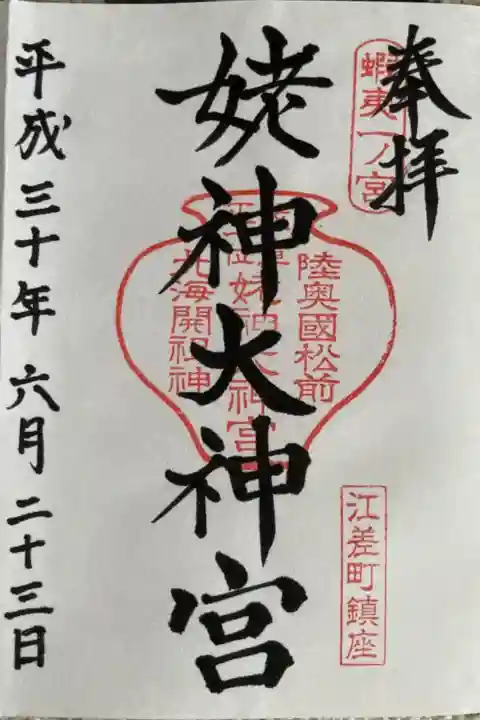 奉拝
蝦夷一ノ宮
姥神大神宮
陸奥國松前
姥神大神宮
北海開祖神
江差町鎮座
平成三十年六月二十三日